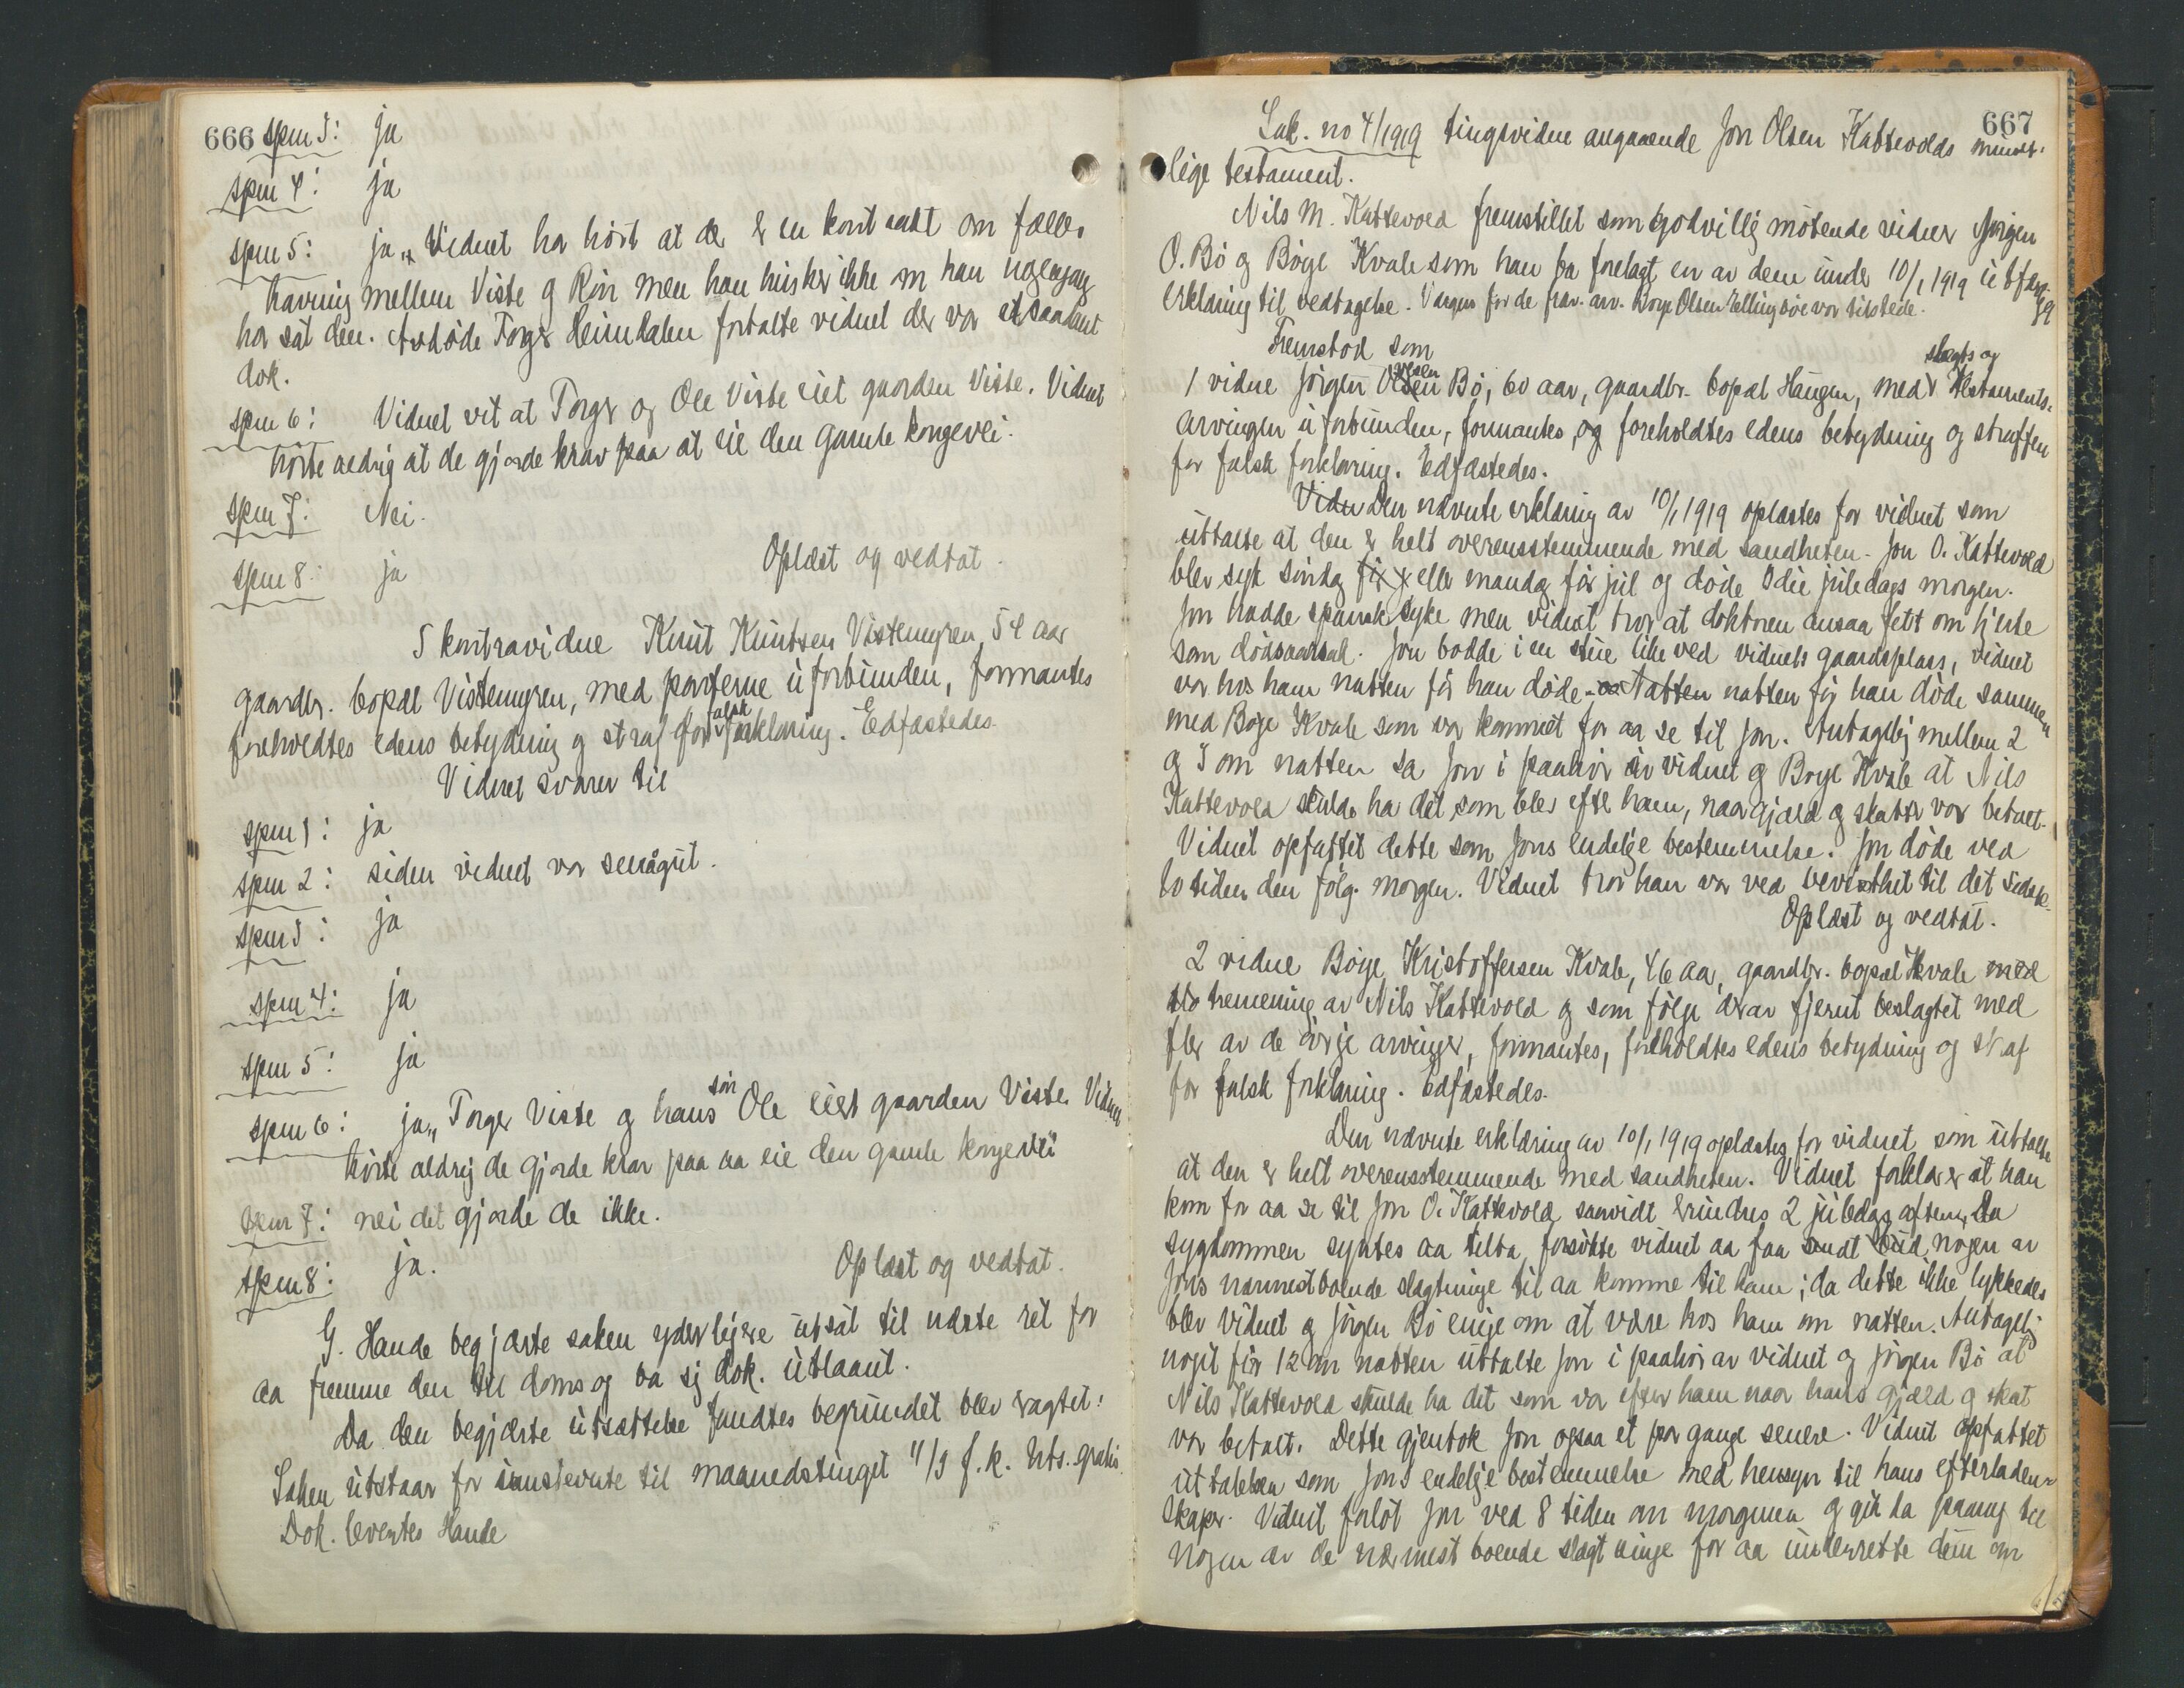 666 spm 3: ja
spm 4: ja
spm 5: ja, Vidnet har hört at der er en kontrakt om fælles
havning mellem Viste og Rön men han husker ikke om han nogengang
har sat den. Avdöde Torger Heimdalen fortalte vidnet der var et saadant
dok.
spm 6: Vidnet vit at Torger og Ole Viste eiet gaarden Viste. Vidnet
hörte aldrig at de gjorde krav paa at eie den gamle kongevei.
spm 7: Nei.
spm 8: ja Oplæst og vedtat.
5 kontravidne Knut Knutsen Vistemyren, 54 aar
gaardbr. bopæl Vistemyren, med parterne uforbunden, formantes
foreholdtes edens betydning og straf for falsk forklaring. Edfæstedes.
Vidnet svarer til
spm 1: ja
spm 2: siden vidnet var smågut.
spm 3: ja
spm 4: ja
spm 5: ja
spm 6: ja, Torger Viste og hans sön Ole eiet gaarden Viste. Vidnet
hörte aldrig de gjorde krav paa aa eie den gamle kongevei
spm 7: nei det gjorde de ikke.
spm 8: ja. Oplæst og vedtat.
G. Hande begjærte saken yderligere utsat til næste ret for
aa fremme den til doms og ba sig dok. utlaant.
Da den begjærte utsættelse fandtes begrundet blev eragtet:
Saken utstaar for instevnte til maanedstinget 11/3 f.k. Uts. gratis.
Dok. levertes Hande
667
Sak. no 4/1919 tingsvidne angaaende Jon Olsen Kattevolds mundt-
lige testament.
Nils M. Kattevold fremstillet som godvillig mötende vidner Jörgen
O. Bö og Böye Kvale som han ba forelagt en av dem under 10/1 1919 utfærdiget
erklæring til vedtagelse. Vergen for de frav. arv. Borge Olsen Ellingböe var tilstede.
Fremstod som
1 vidne Jörgen Olsen Bö, 60 aar, gaardbr. bopæl Haugen, med slegts og testaments-
arvingen uforbunden, formantes, og foreholdtes edens betydning og straffen
for falsk forklaring. Edfæstedes.
Vidn Den nævnte erklæring av 10/1 1919 oplæstes for vidnet som
uttalte at den er helt overensstemmende med sandheten. Jon O. Kattevold
blev syk söndag för j eller mandag för jul og döde 3die juledags morgen.
Jon hadde spansk syke men vidnet tror at doktoren ansaa fett om hjerte
som dödsaarsak. Jon bodde i en stue like ved vidnets gaardsplass, vidnet
var hos ham natten för han döde og Natten natten för han döde sammen
med Böye Kvale som var kommet for aa se til Jon. Antagelig mellem 2
og 3 om natten sa Jon i paahör av vidnet og Böye Kvale at Nils
Kattevold skulde ha det som blev efter ham, naar gjæld og skatter var betalt.
Vidnet opfattet dette som Jons endelige bestemmelse. Jon döde ved
10 tiden den fölg. morgen. Vidnet tror han var ved bevissthet til det sidste.
Oplæst og vedtat.
2 vidne Böye Kristoffersen Kvale, 46 aar, gaardbr. bopæl Kvale med
tremenning av Nils Kattevold og som fölge derav fjernt beslagtet med
fler av de övrige arvinger, formantes, foreholdtes edens betydning og straf
for falsk forklaring. Edfæstedes.
Den nævnte erklæring av 10/1 1919 oplæstes for vidnet, som uttalte
at den er helt overensstemmende med sandheten. Vidnet forklarer at han
kom for aa se til Jon O. Kattevold saavidt erindres 2 juledags aften. Da
sygdommen syntes aa tilta, forsökte vidnet aa faa sendt bud nogen av
Jons nærmest boende slegtninge til aa komme til ham; da dette ikke lykkedes
blev vidnet og Jörgen Bö enige om at være hos ham om natten. Antagelig
noget för 12 om natten uttalte Jon i paahör av vidnet og Jörgen Bö at
Nils Kattevold skulde ha det som var efter ham naar hans gjæld og skat
var betalt. Dette gjentok Jon ogsaa et par gange senere. Vidnet opfattet
uttalelsen som Jons endelige bestemmelse med hensyn til hans efterladen-
skaper. Vidnet forlöt Jon ved 8 tiden om morgenen og gik da paany til
nogen av de nærmest boende slegtninge for aa underrette dem om